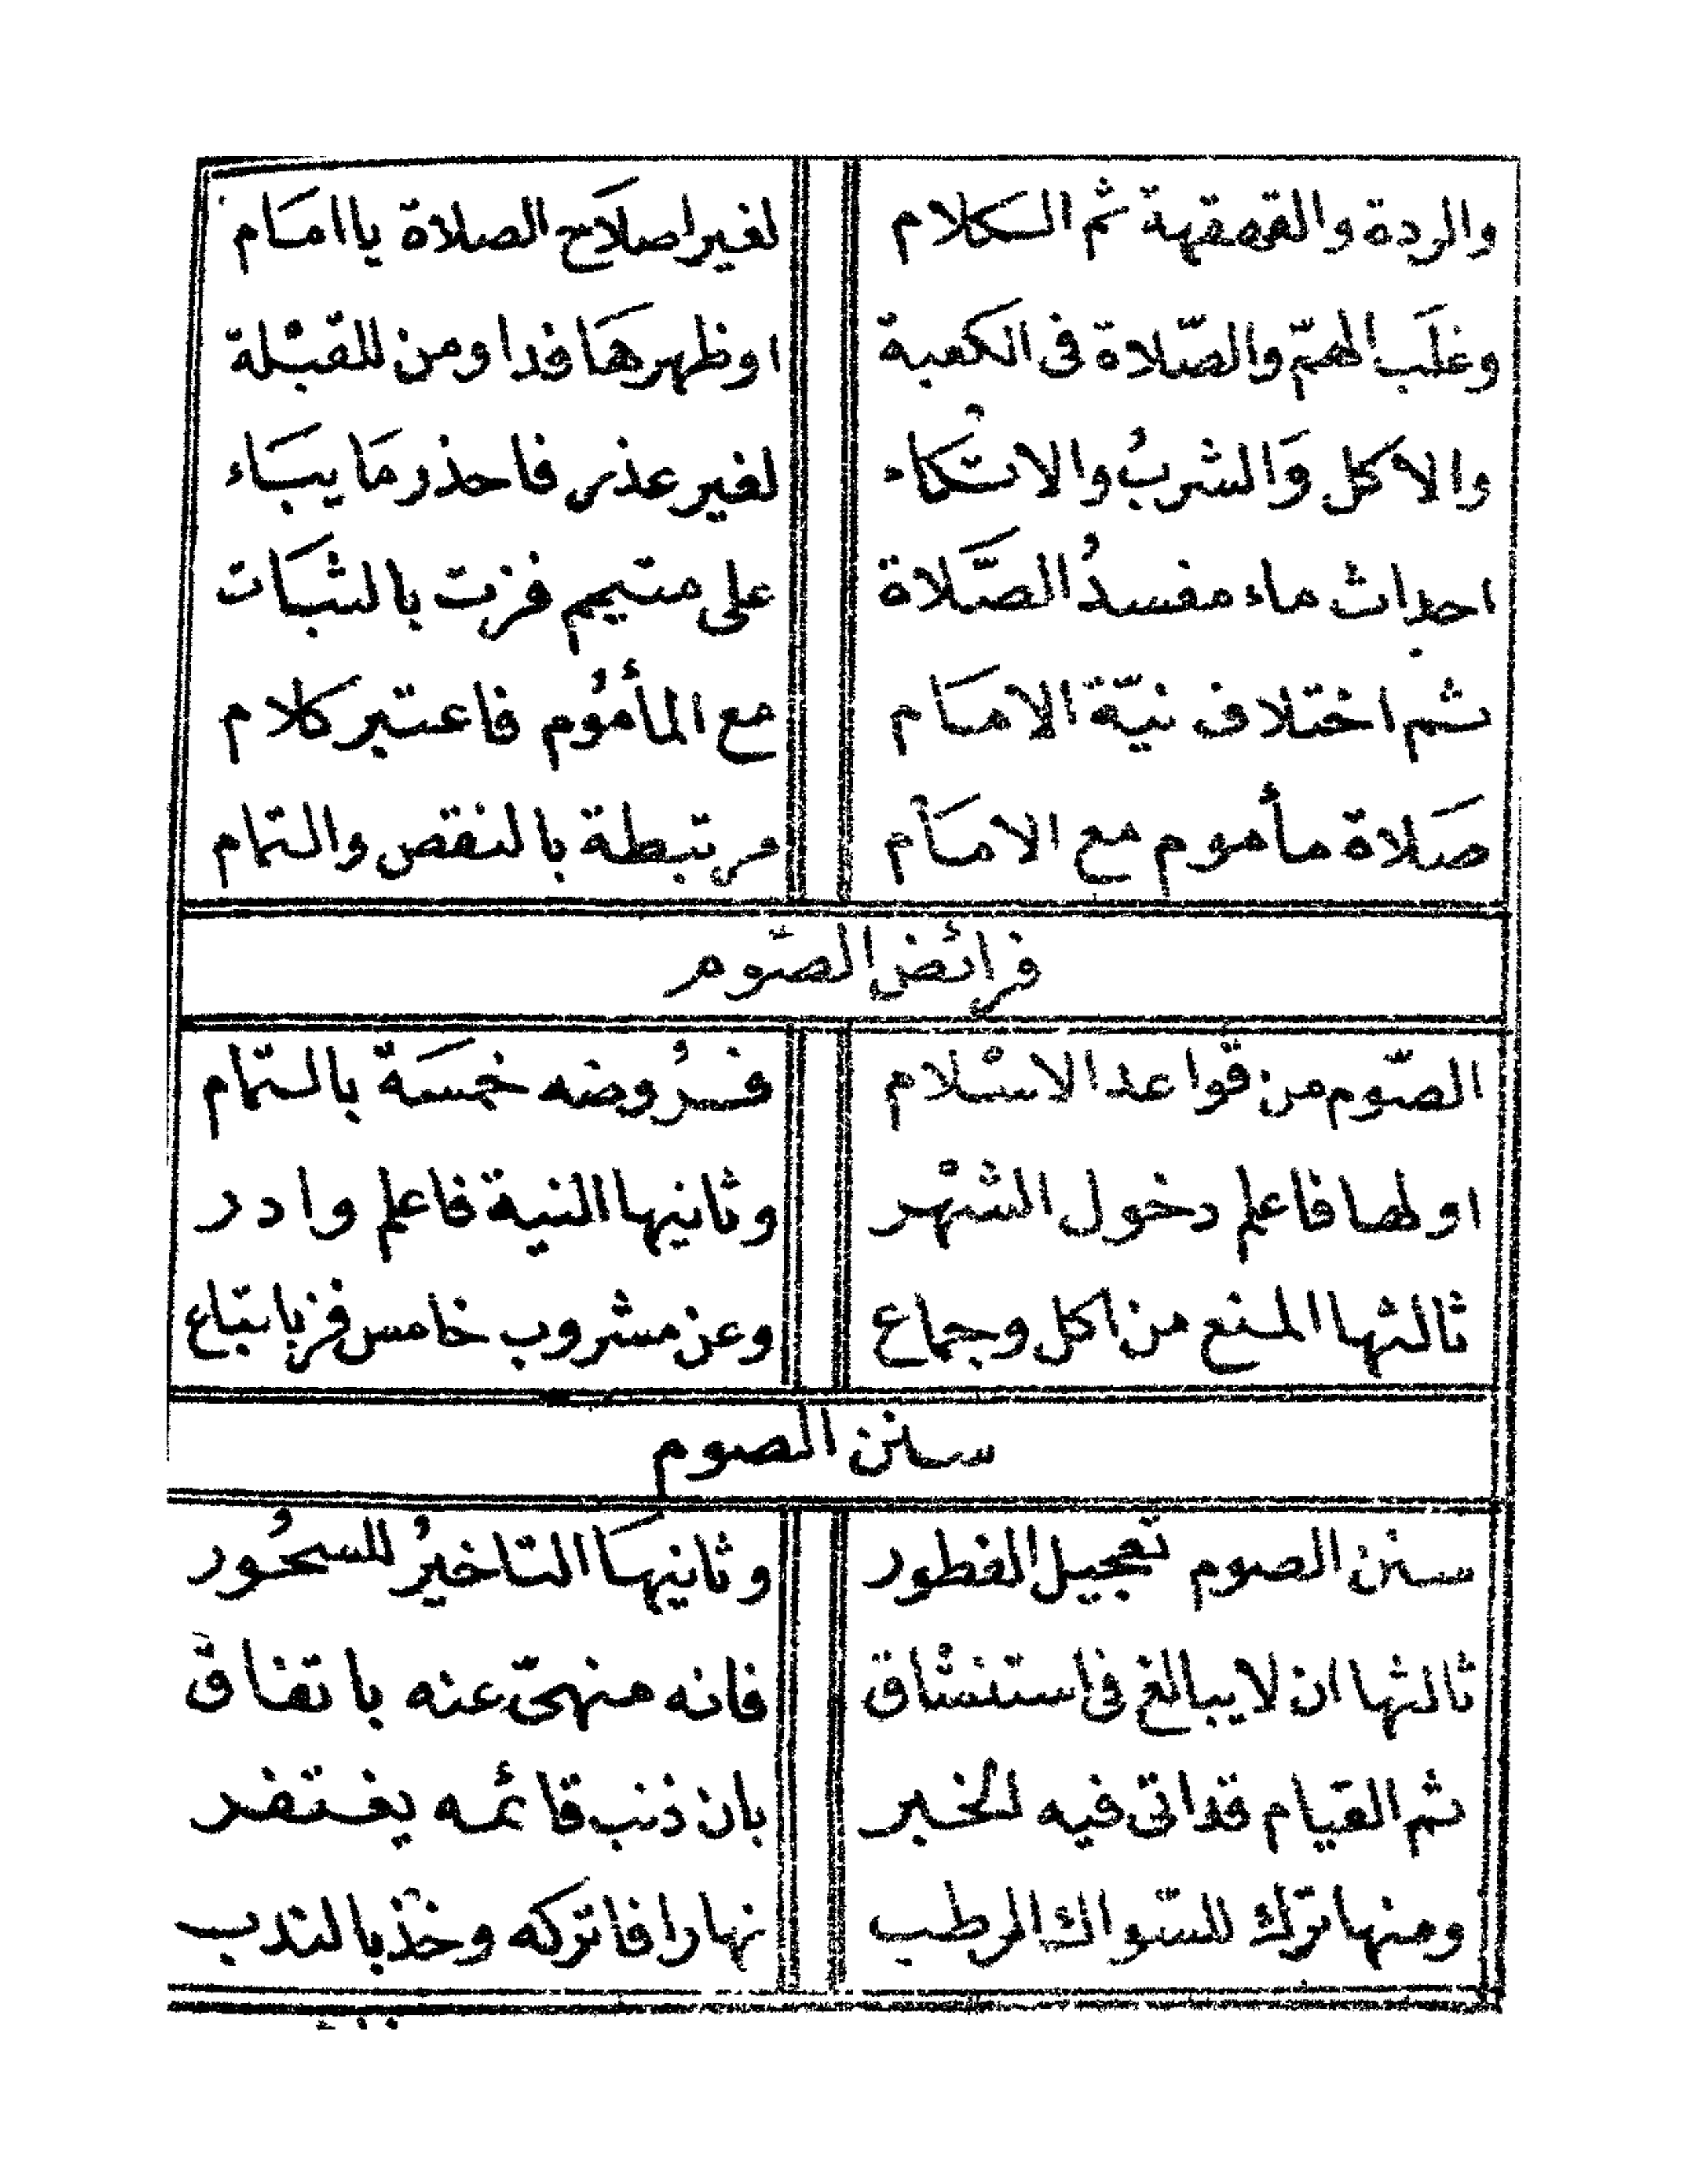 والردة والقهقهة ثم الكلام لغير اصلاح الصلاة يا امام
وغلَب الهمّ والصّلاة فى الكعبة او ظهرهَا فدا ومن للقبْلة
والاكل وَالشربُ والاتْكاء لغير عذر فاحذر مَا يبَاء
احداث ماء مفسدُ الصَّلاة على متيمم فزت بالثبَات
ثم اختلاف نيّة الامَام مع المأمُوم فاعتبر كلام
صَلاة مأموم مع الامَام مرتبطة بالنقص والتمام
فرائض الصّوم
الصّوم من قوّاعد الاسْلام فرُوضه خمسَة بالتّمام
اولها فاعلم دخول الشهْر وثانيها النية فاعلم وادر
ثالثها المنع من اكل وجماع وعن مشروب خامس فز باتباع
سنن الصوم
سنن الصوم تعجيل الفطور وثانيهَا التاخيرُ للسحُور
ثالثها ان لا يبالغ فى استنشْاق فانه منهىّ عنه باتفاق
ثم القيام قد اتى فيه الخبر بان ذنب قائمه يغتفر
ومنها ترك للسّواك الرطب نهارا فاتركه وخذ بالندب